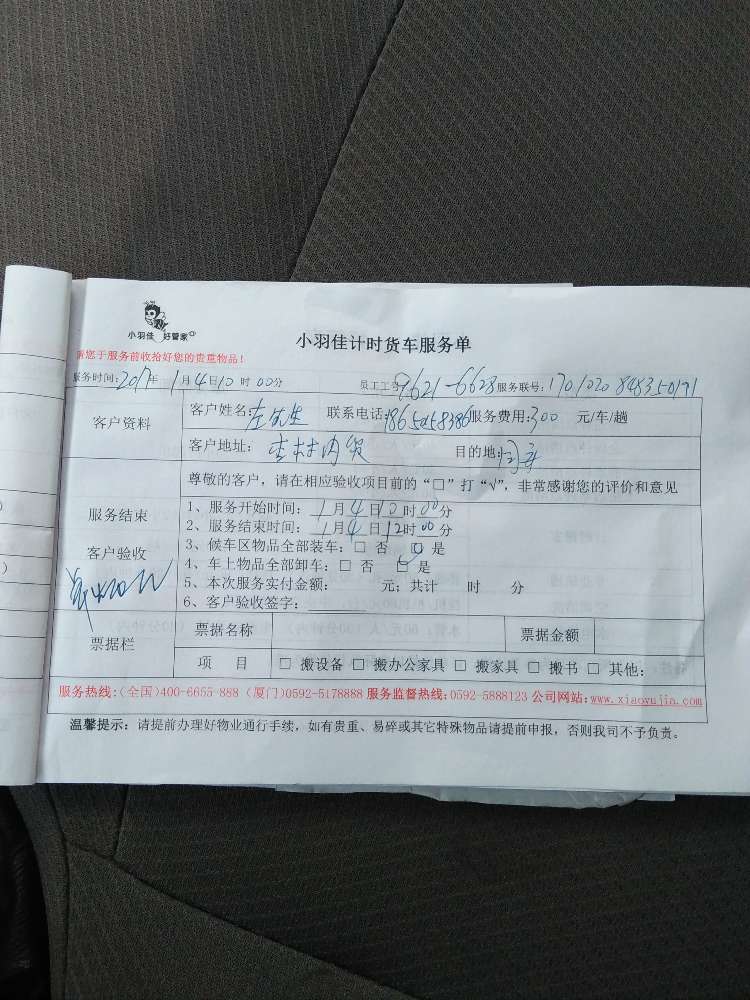 小羽佳 好管家
小羽佳计时货车服务单
请您于服务前收拾好您的贵重物品！
服务时间：2017年1月4日10时00分 员工工号 9621-6628 服务联号：
客户资料
客户姓名：左先生 联系电话： 服务费用：300 元/车/趟
客户地址： 目的地：
服务结束
客户验收
尊敬的客户，请在相应验收项目前的“□”打“√”，非常感谢您的评价和意见
1、服务开始时间：1月4日10时00分
2、服务结束时间：1月4日12时00分
3、候车区物品全部装车：□ 否 □ 是
4、车上物品全部卸车：□ 否 □ 是
5、本次服务实付金额： 元；共计 时 分
6、客户验收签字：
票据栏
票据名称 票据金额
项 目 □ 搬设备 □ 搬办公家具 □ 搬家具 □ 搬书 □ 其他：
服务热线：(全国)400-6655-888 (厦门)0592-5178888 服务监督热线：0592-5888123 公司网站：www.xiaoyujia.com
温馨提示：请提前办理好物业通行手续，如有贵重、易碎或其它特殊物品请提前申报，否则我司不予负责。